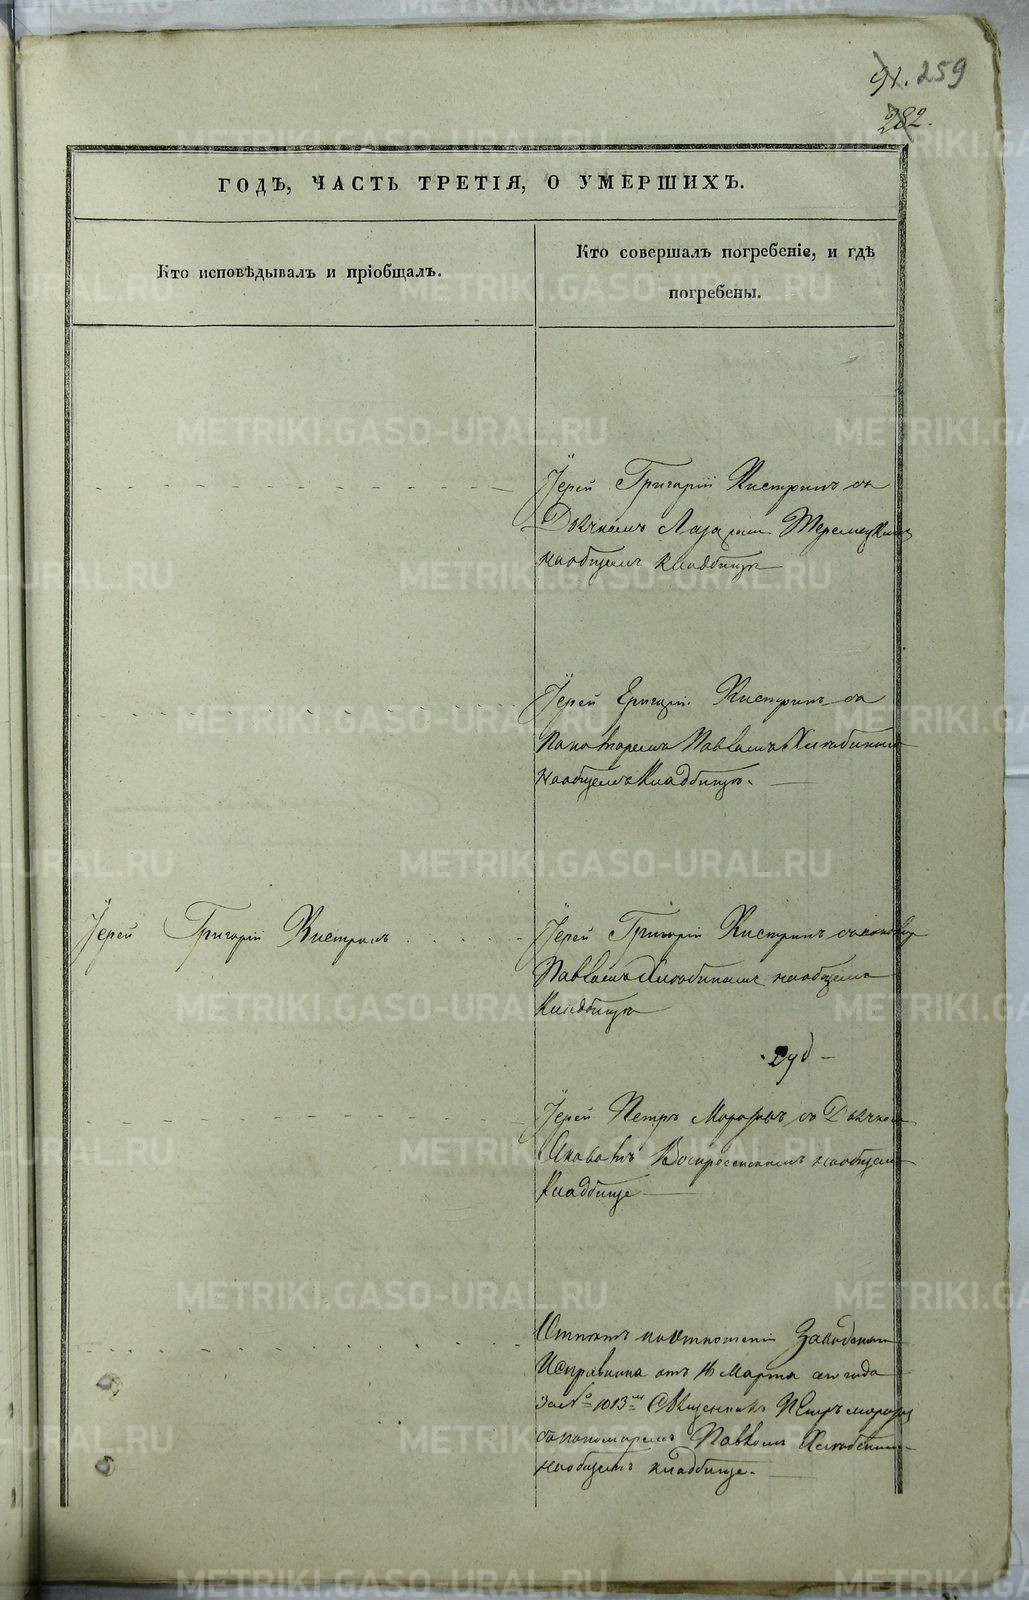 91. 259
282.
ГОДЪ, ЧАСТЬ ТРЕТІЯ, О УМЕРШИХЪ.
Кто исповѣдывалъ и пріобщалъ.
Кто совершалъ погребеніе, и гдѣ
погребены.
Іерей Григорій Кистринъ съ
Дьячкомъ
наобщемъ кладбищѣ
Іерей Григорій Кистринъ съ
Пономаремъ Павломъ Хлѣбинымъ
наобщемъ Кладбищѣ.
Іерей Григорій Кистринъ
Іерей Григорій Кистринъ
Павломъ Хлѣбинымъ наобщемъ
Кладбищѣ
Іерей Петръ Морозовъ съ Дьячкомъ
Воскресенскимъ наобщемъ
Кладбище
Отпѣтъ поотношенію Заводскаго
Исправника отъ 16 Марта сего года
за № 1013 Священникъ Петръ Морозовъ
съ пономаремъ Павломъ Хлѣбинымъ
наобщемъ кладбище.
METRIKI.GASO-URAL.RU